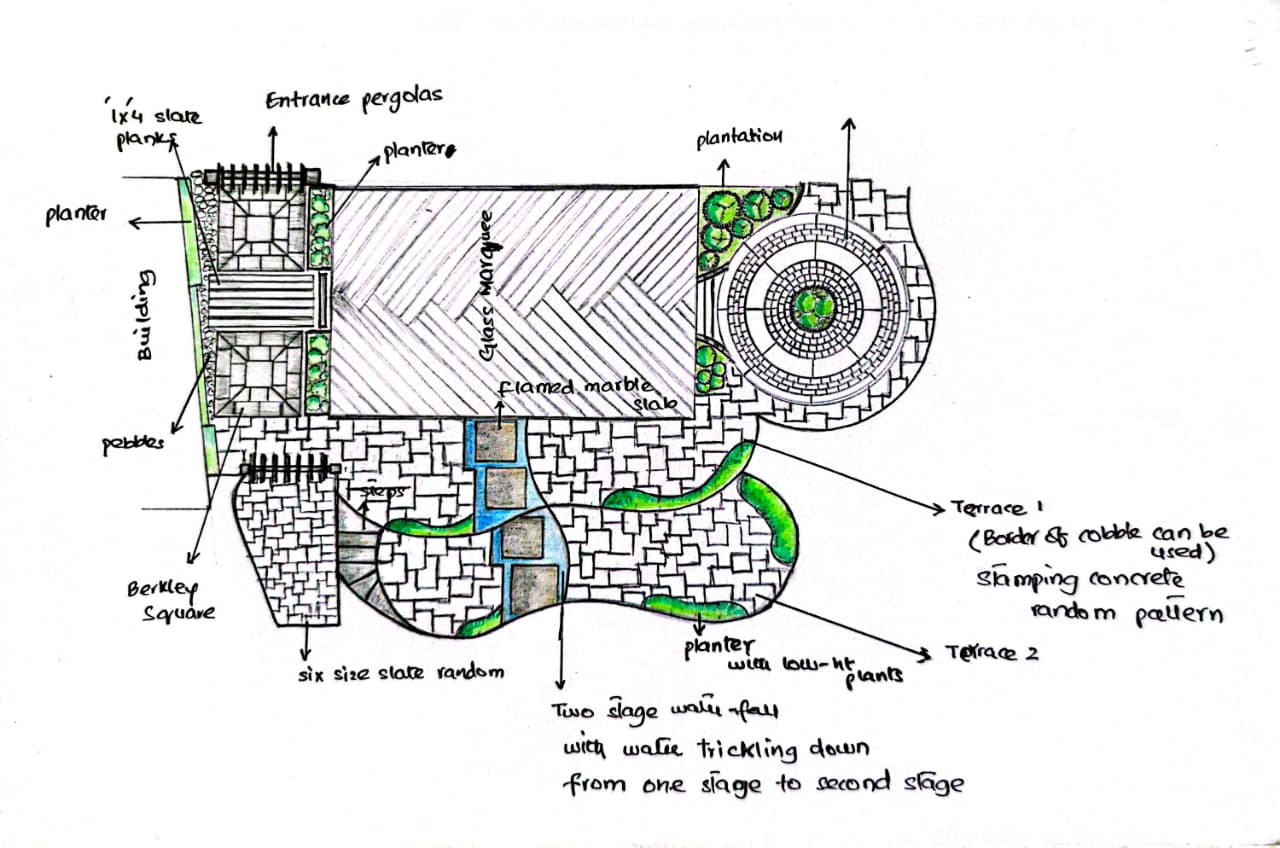 Entrance pergolas
1'x'4 slate
planks
planters
plantation
planter
Building
Glass marquee
flamed marble
slab
pebbles
steps
Terrace 1
(Border of cobble can be
used)
Stamping concrete
random pattern
Berkley
Square
Terrace 2
planter
with low-ht
plants
six size slate random
Two stage water-fall
with water trickling down
from one stage to second stage